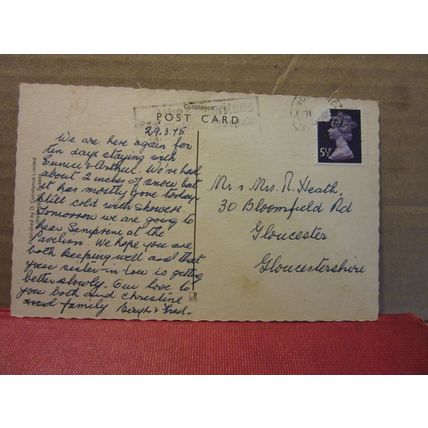 Constance
POST CARD
29.3.75
We are here again for
ten days staying with
Eunice & Arthur. We've had
about 2 inches of snow but
it has mostly gone today.
Still cold with showers.
Tomorrow we are going to
hear Semprini at the
Pavilion. We hope you are
both keeping well and that
your sister-in law is getting
better slowly. Our love to
you both and Christine
and family Beryl & Fred-
5½P
Mr & Mrs. R. Heath,
30 Bloomfield Rd
Gloucester
Gloucestershire
Published by D. Constance Limited
Littlehampton, Sussex